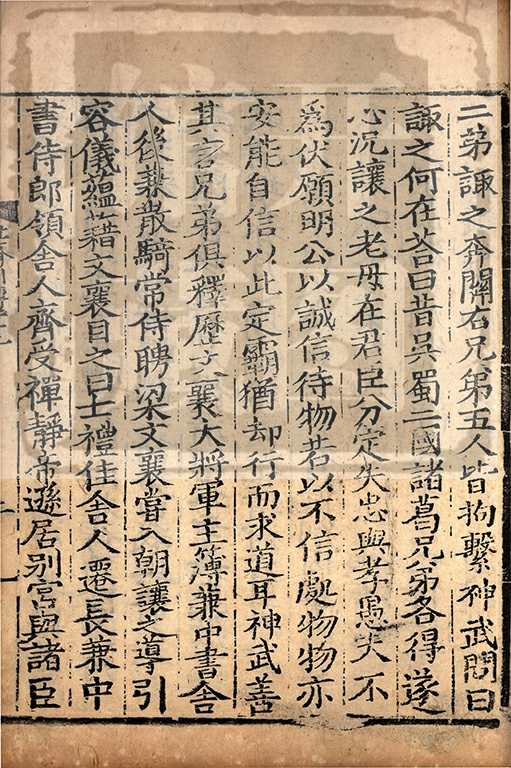 二弟諏之奔關右兄弟五人皆拘繫神武問曰
諏之何在荅曰昔吳蜀二國諸葛兄弟各得遂
心况讓之老母在君臣分定失忠與孝愚夫不
爲伏願明公以誠信待物若以不信處物物亦
安能自信以此定霸猶却行而求道耳神武善
其言兄弟俱釋歷文襄大將軍主簿兼中書舍
人後兼散騎常侍聘梁文襄嘗入朝讓之導引
容儀蘊藉文襄目之曰士禮佳舍人遷長兼中
書侍郎領舍人齊受禪靜帝遜居别宮與諸臣